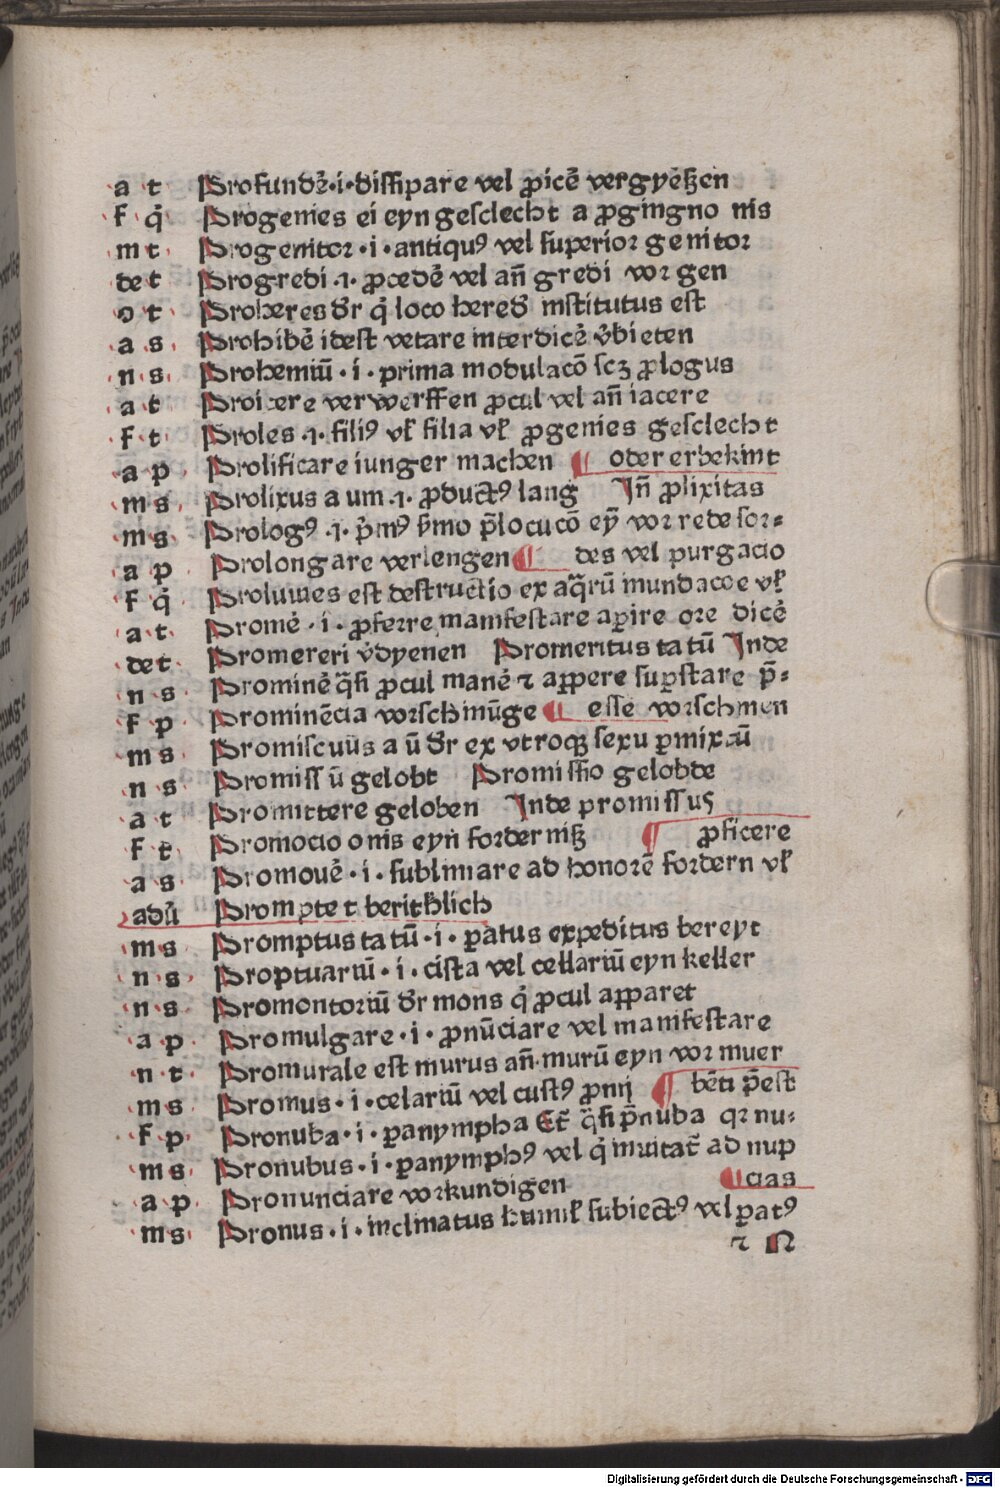 a t Profundẽ·i·dissipare vel ꝓicẽ vergyeßen
f q̇ Progenies ei eyn gesclecht a ꝓgingno nis
m t Progenitor·i·antiquꝰ vel superior genitor
de t Progredi·i·ꝓcedẽ vel añ gredi vor gen
o t Proheres dr̃ q̇ loco hered̃ institutus est
a s Prohibẽ idest vetare interdicẽ v̾bieten
n s Prohemiũ·i·prima modulacõ scꝫ ꝓlogus
a t Proicere verwerffen ꝓcul vel añ iacere
f t Proles·i·filiꝰ vł filia vł ꝓgenies gesclecht
a p Prolificare iunger machen ¶ oder erbekint
m s Prolixus a um·i·ꝓductꝰ lang Iñ ꝓlixitas
m s Prologꝰ·i·p̃mꝰ s̾mo p̃locucõ eỹ vor rede sor⸗
a p Prolongare verlengen ¶ des vel purgacio
f q̇ Proluuies est destructio ex aq̃rũ mundacõe vł
a t Promẽ·i·ꝓferre manifestare aꝑire ore dicẽ
de t Promereri v̾dyenen Promeritus ta tũ Inde
n s Prominẽ q̃si ꝓcul manẽ ⁊ aꝑpere suꝑstare p̃⸗
f p Prominẽcia vorschinũge ¶ esse vorschinen
m s Promiscuus a ũ dr̃ ex vtroqꝫ sexu ꝑmixtũ
n s Promissũ gelobt Promissio gelobde
a t Promittere geloben Inde promissus
f t Promocio onis eyn forderniß ¶ ꝓficere
a s Promouẽ·i·sublimare ad honorẽ fordern vł
adũ Prompte t beritlich
m s Promptus ta tũ·i·ꝑatus expeditus bereyt
n s Proptuariũ·i·cista vel cellariũ eyn keller
n s Promontoriũ dr̃ mons q̇ ꝓcul aꝑparet
a p Promulgare·i·ꝓnũciare vel manifestare
n t Promurale est murus añ murũ eyn vor muer
m s Promus·i·celariũ vel custꝰ ꝓnij ¶ bẽti p̃est
f p Pronuba·i·ꝑanympha Et̃ q̃si p̃nuba qꝛ nu⸗
m s Pronubus·i·ꝑanymphꝰ vel q̇ inuitat̃ ad nup
a p Pronunciare vorkundigen ¶ cias
m s Pronus·i·inclinatus humił subiectꝰ vel ꝑatꝰ
⁊ N
Digitalisierung gefördert durch die Deutsche Forschungsgemeinschaft - DFG